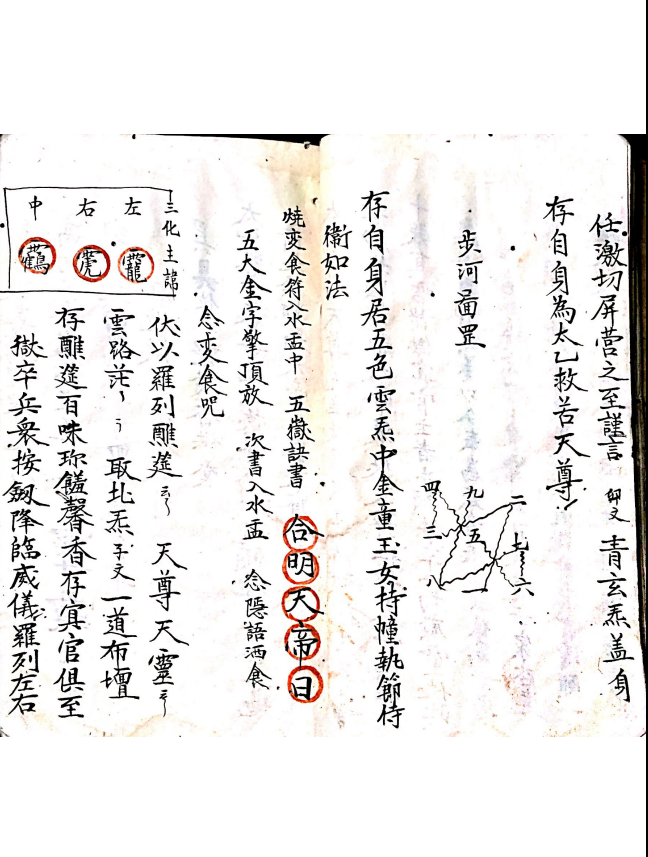 任激切屏营之至謹言 卯文 青玄炁盖身
存自身為太乙救苦天尊
步河畐罡
四 九 二
三 五 七
八 一 六
存自身居五色雲炁中金童玉女持幢執節侍
衛如法
燒変食符入水盂中 五嶽訣書 合明天帝日
五大金字擎頂放 次書入水盂 念隱語洒食
念変食呪
三化主諱
左
右
中
伏以羅列醮筵 天尊天靈
雲路茫 取北炁子文一道布壇
存醮筵百味珎饈馨香存㝠官俱至
嶽卒兵衆按劔降臨威儀羅列左右